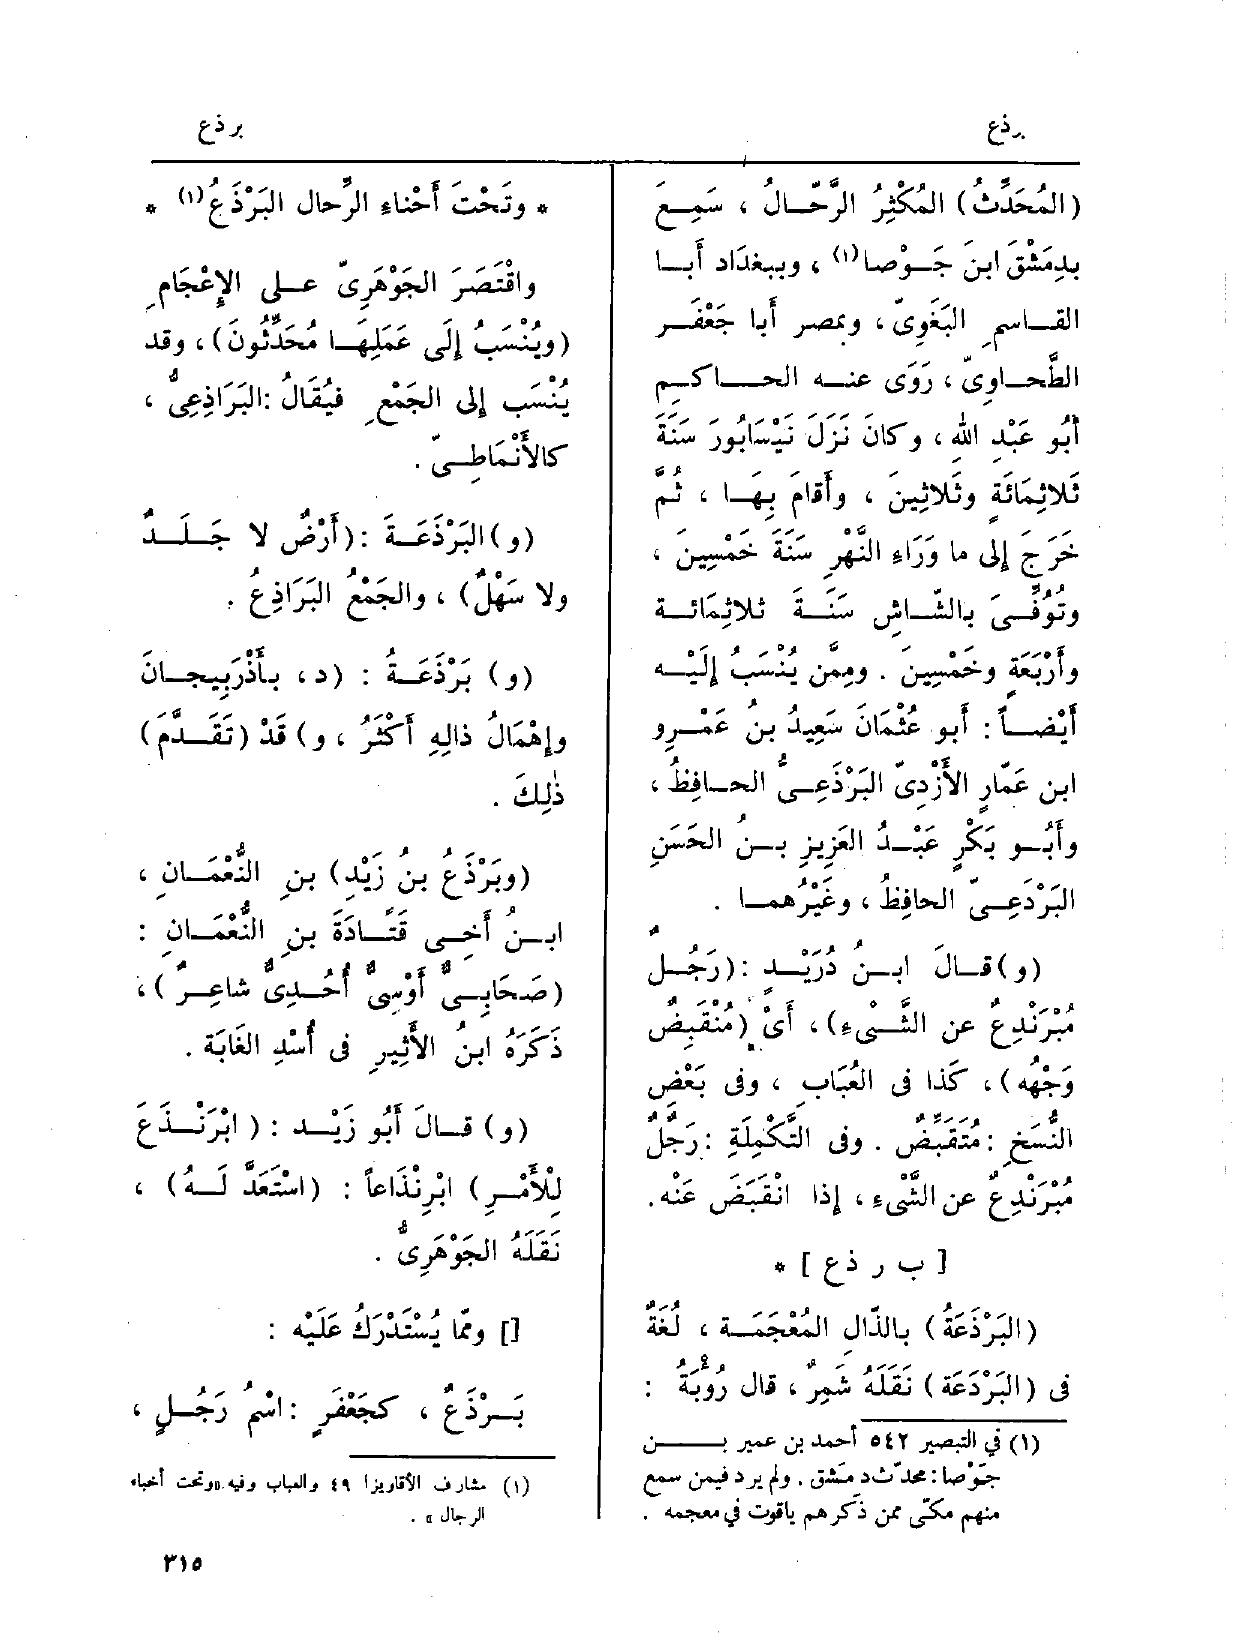 برذع
برذع
(المُحَدِّثُ) المُكْثِرُ الرَّحّالُ ، سَمِعَ
بدِمَشْقَ ابنَ جَوْصا(١) ، وببغدَاد أَبا
القاسمِ البَغَوِىّ ، وبمصر أَبا جَعْفَر
الطَّحاوِىّ ، رَوَى عنه الحاكم
أَبُو عَبْدِ الله ، وكانَ نَزَلَ نَيْسَابُورَ سَنَةَ
ثَلاثِمَائَةٍ وثَلاثِينَ ، وأَقامَ بِهَا ، ثُمّ
خَرَجَ إِلى ما وَرَاءِ النَّهْرِ سَنَةَ خَمْسِين ،
وتُوُفِّىَ بالشّاشِ سَنَةَ ثلاثِمَائة
وأَرْبَعَةٍ وخَمْسِينَ . ومِمَّن يُنْسَبُ إِلَيْه
أَيْضاً : أَبو عُثْمَانَ سَعِيدُ بنُ عَمْرِو
ابن عَمّارٍ الأَزْدِىّ البَرْذَعِىُّ الحافِظُ ،
وأَبُو بَكْرٍ عَبْدُ العَزِيزِ بنُ الحَسَنِ
البَرْدَعِىّ الحافظُ ، وغَيْرُهما .
(و) قالَ ابنُ دُرَيْدٍ : (رَجُلٌ
مُبْرَنْدِعٌ عن الشَّىءِ) ، أَىْ (مُنْقَبِضٌ
وَجْهُه) ، كَذا فى العُبَابِ ، وفى بَعْضِ
النُّسَخِ : مُتَقَبِّضٌ . وفى التَّكْمِلَةِ : رَجُلٌ
مُبْرَنْدِعٌ عن الشَّىءِ ، إِذا انْقَبَضَ عَنْه .
[ ب ر ذ ع ] *
(البَرْذَعَةُ) بالذّال المُعْجَمَة ، لُغَةٌ
فى (البَرْدَعَة) نَقَلَهُ شَمِرٌ ، قال رُؤْبَةُ :
(١) في التبصير ٥٤٢ أحمد بن عمير بن
جَوْصا : محدّث دمشق . ولم يرد فيمن سمع
منهم مكّى ممن ذكرهم ياقوت في معجمه .
* وتَحْتَ أَحْناءِ الرِّحال البَرْذَعُ(١) *
واقْتَصَرَ الجَوْهَرِىّ على الإِعْجَامِ
(ويُنْسَبُ إِلَى عَمَلِهَا مُحَدِّثُونَ) ، وقد
يُنْسَب إِلى الجَمْعِ فيُقَالُ : البَرَاذِعِىُّ ،
كالأَنْمَاطِىّ .
(و) البَرْذَعَةَ : (أَرْضٌ لا جَلَدٌ
ولا سَهْلٌ) ، والجَمْعُ البَرَاذِعُ .
(و) بَرْذَعَةُ : (د ، بأَذْرَبِيجانَ
وإِهْمَالُ ذالِهِ أَكْثَرُ ، و) قَدْ (تَقَدَّمَ)
ذٰلِكَ .
(وبَرْذَعُ بنُ زَيْدِ) بنِ النُّعْمَانِ ،
ابنُ أَخِى قَتَادَةَ بنِ النُّعْمَانِ :
(صَحَابِىٌّ أَوْسِىٌّ أُحُدِىٌّ شاعِرٌ) ،
ذَكَرَهُ ابنُ الأَثِيرِ فى أُسْدِ الغَابَة .
(و) قالَ أَبُو زَيْد : ( ابْرَنْذَعَ
لِلْأَمْرِ) ابْرِنْذَاعاً : (اسْتَعَدَّ لَهُ) ،
نَقَلَهُ الجَوْهَرِىُّ .
[] ومّا يُسْتَدْرَكُ عَلَيْه :
بَرْذَعٌ ، كجَعْفَرٍ : اسْمُ رَجُلٍ ،
(١) مشارف الأقاويز ٤٩ والعباب وفيه «وتحت أحناء
الرجال » .
٣١٥